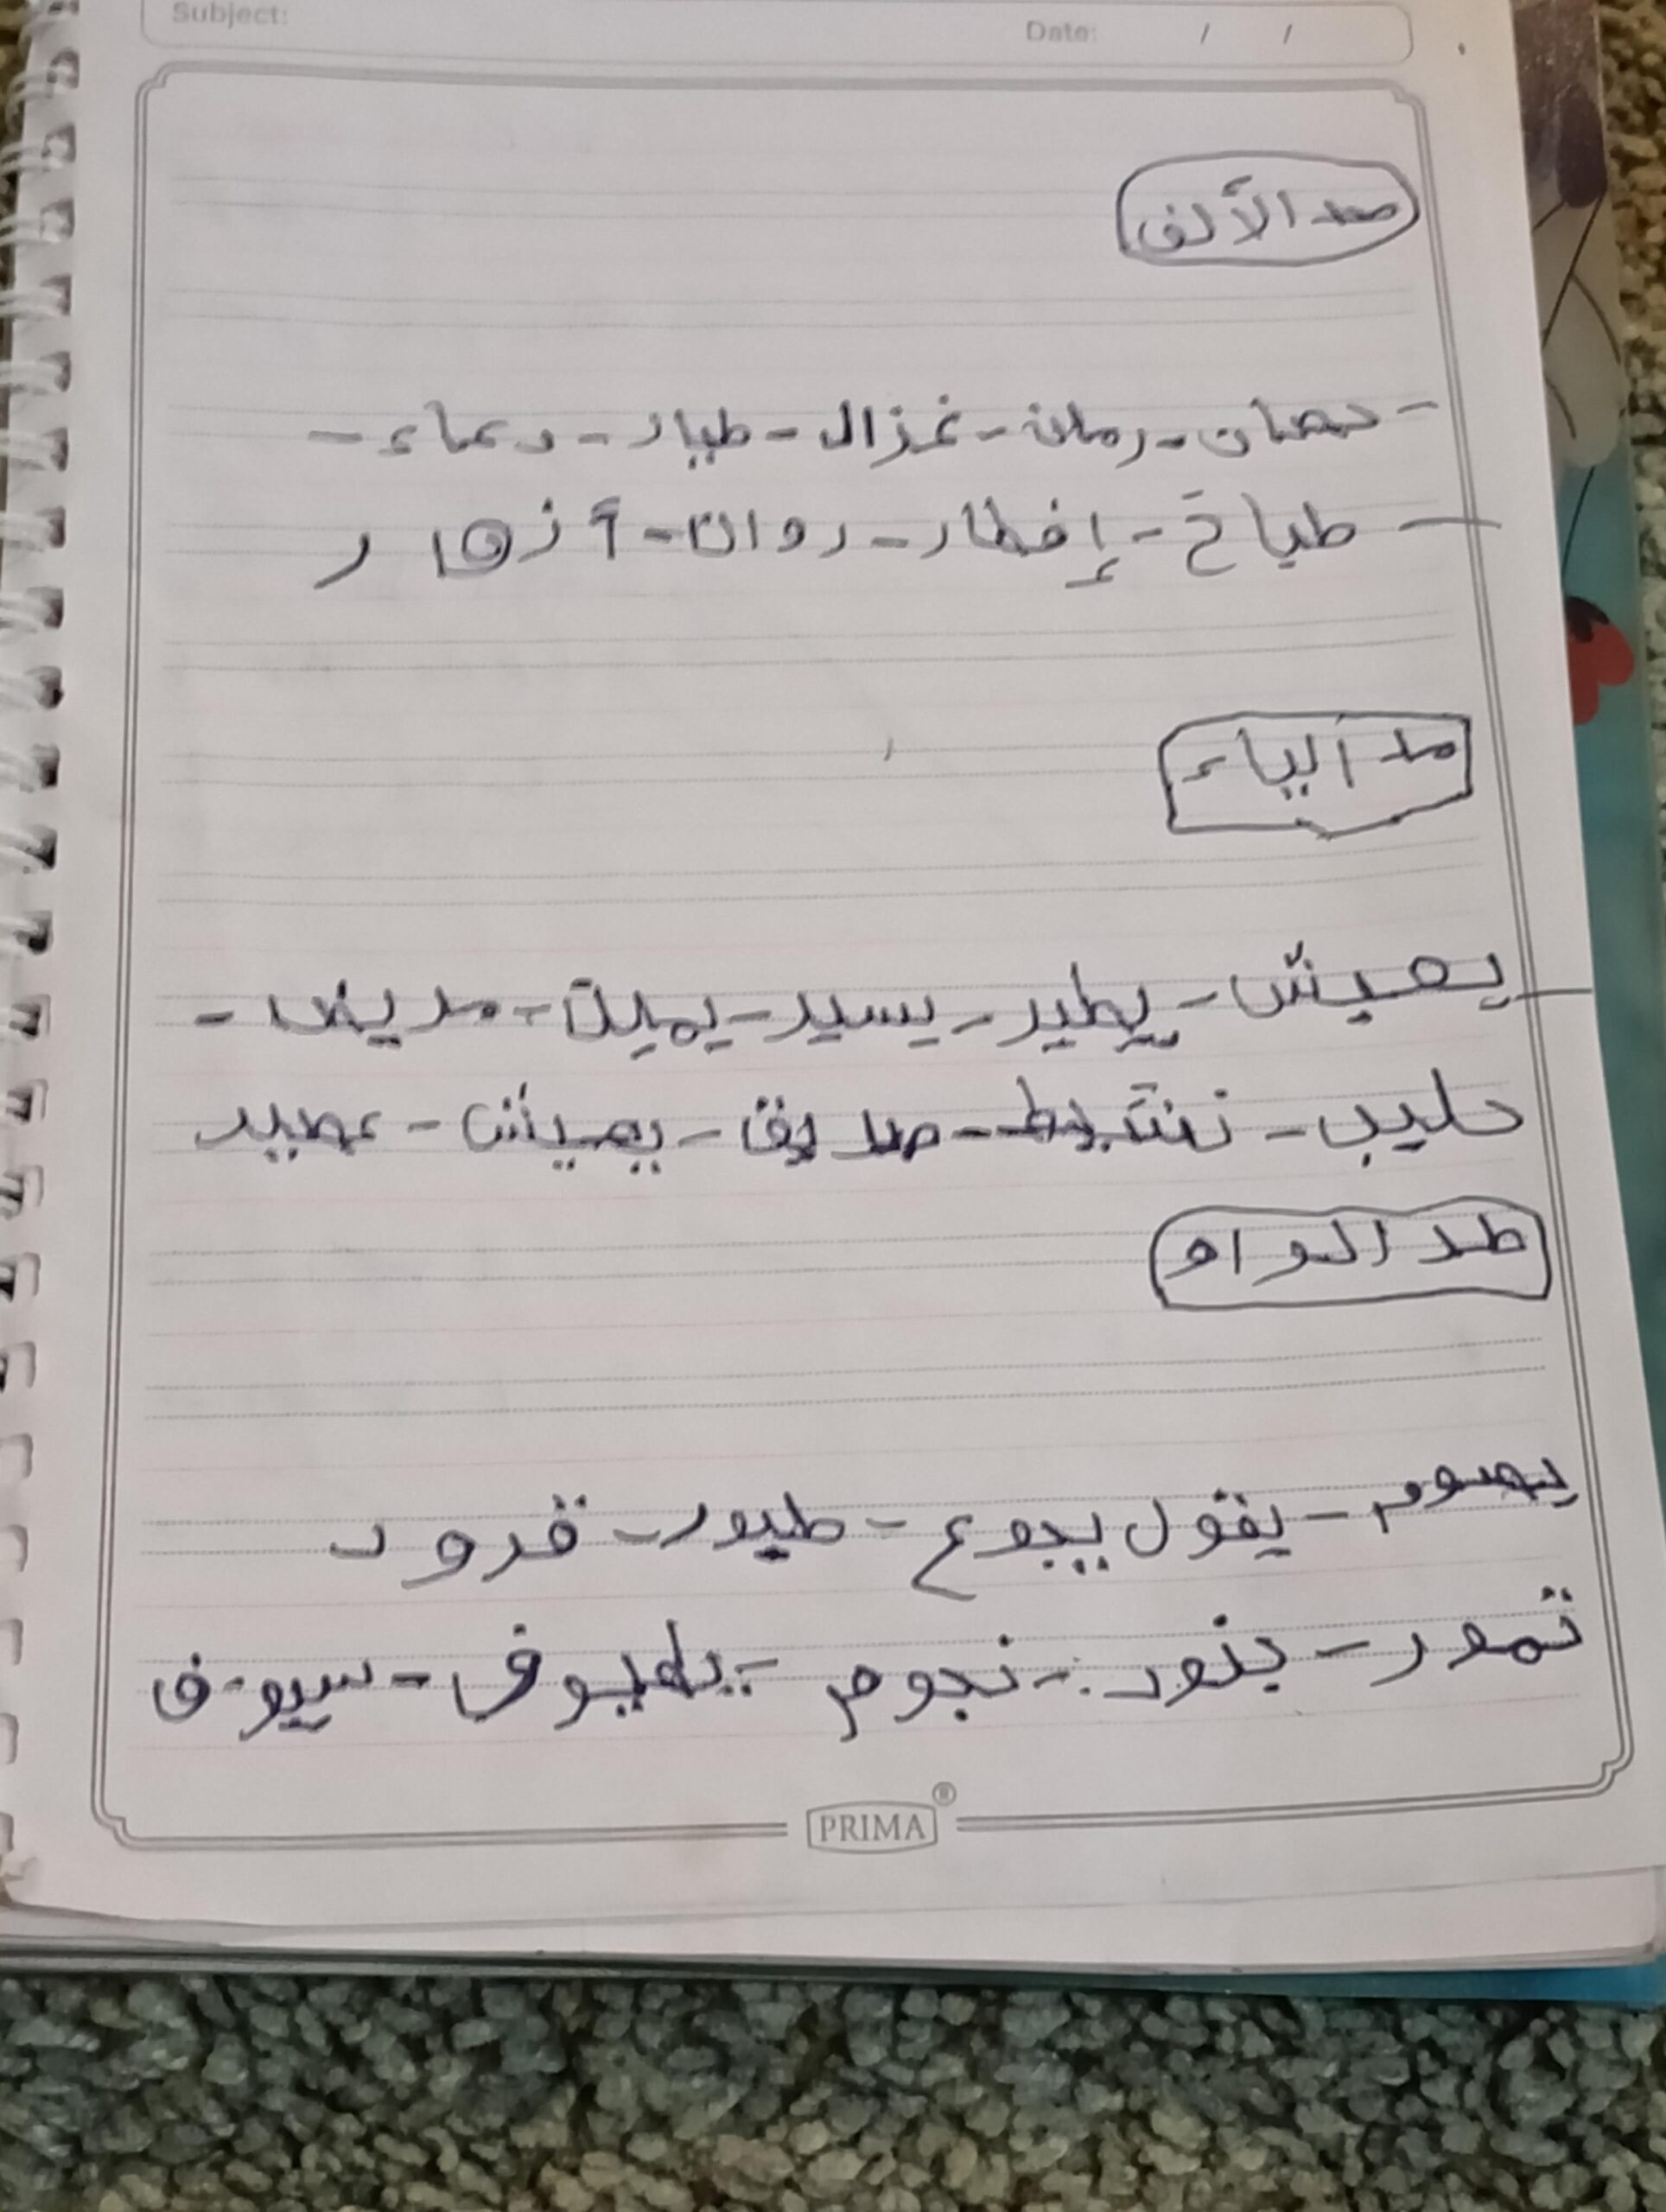 Subject:
Date: / /
مد الألف
- حصان - رمان - غزال - طيار - دعاء -
- طباخ - إفطار - روان - أزهار
مد الياء
يعيش - يطير - يسير - يميل - مريض -
حليب - نشيط - صديق - يعيش - عصير
مد الواو
يصوم - يقول يجوع - طيور - قرود
تمور - بذور - نجوم - سيوف
PRIMA®